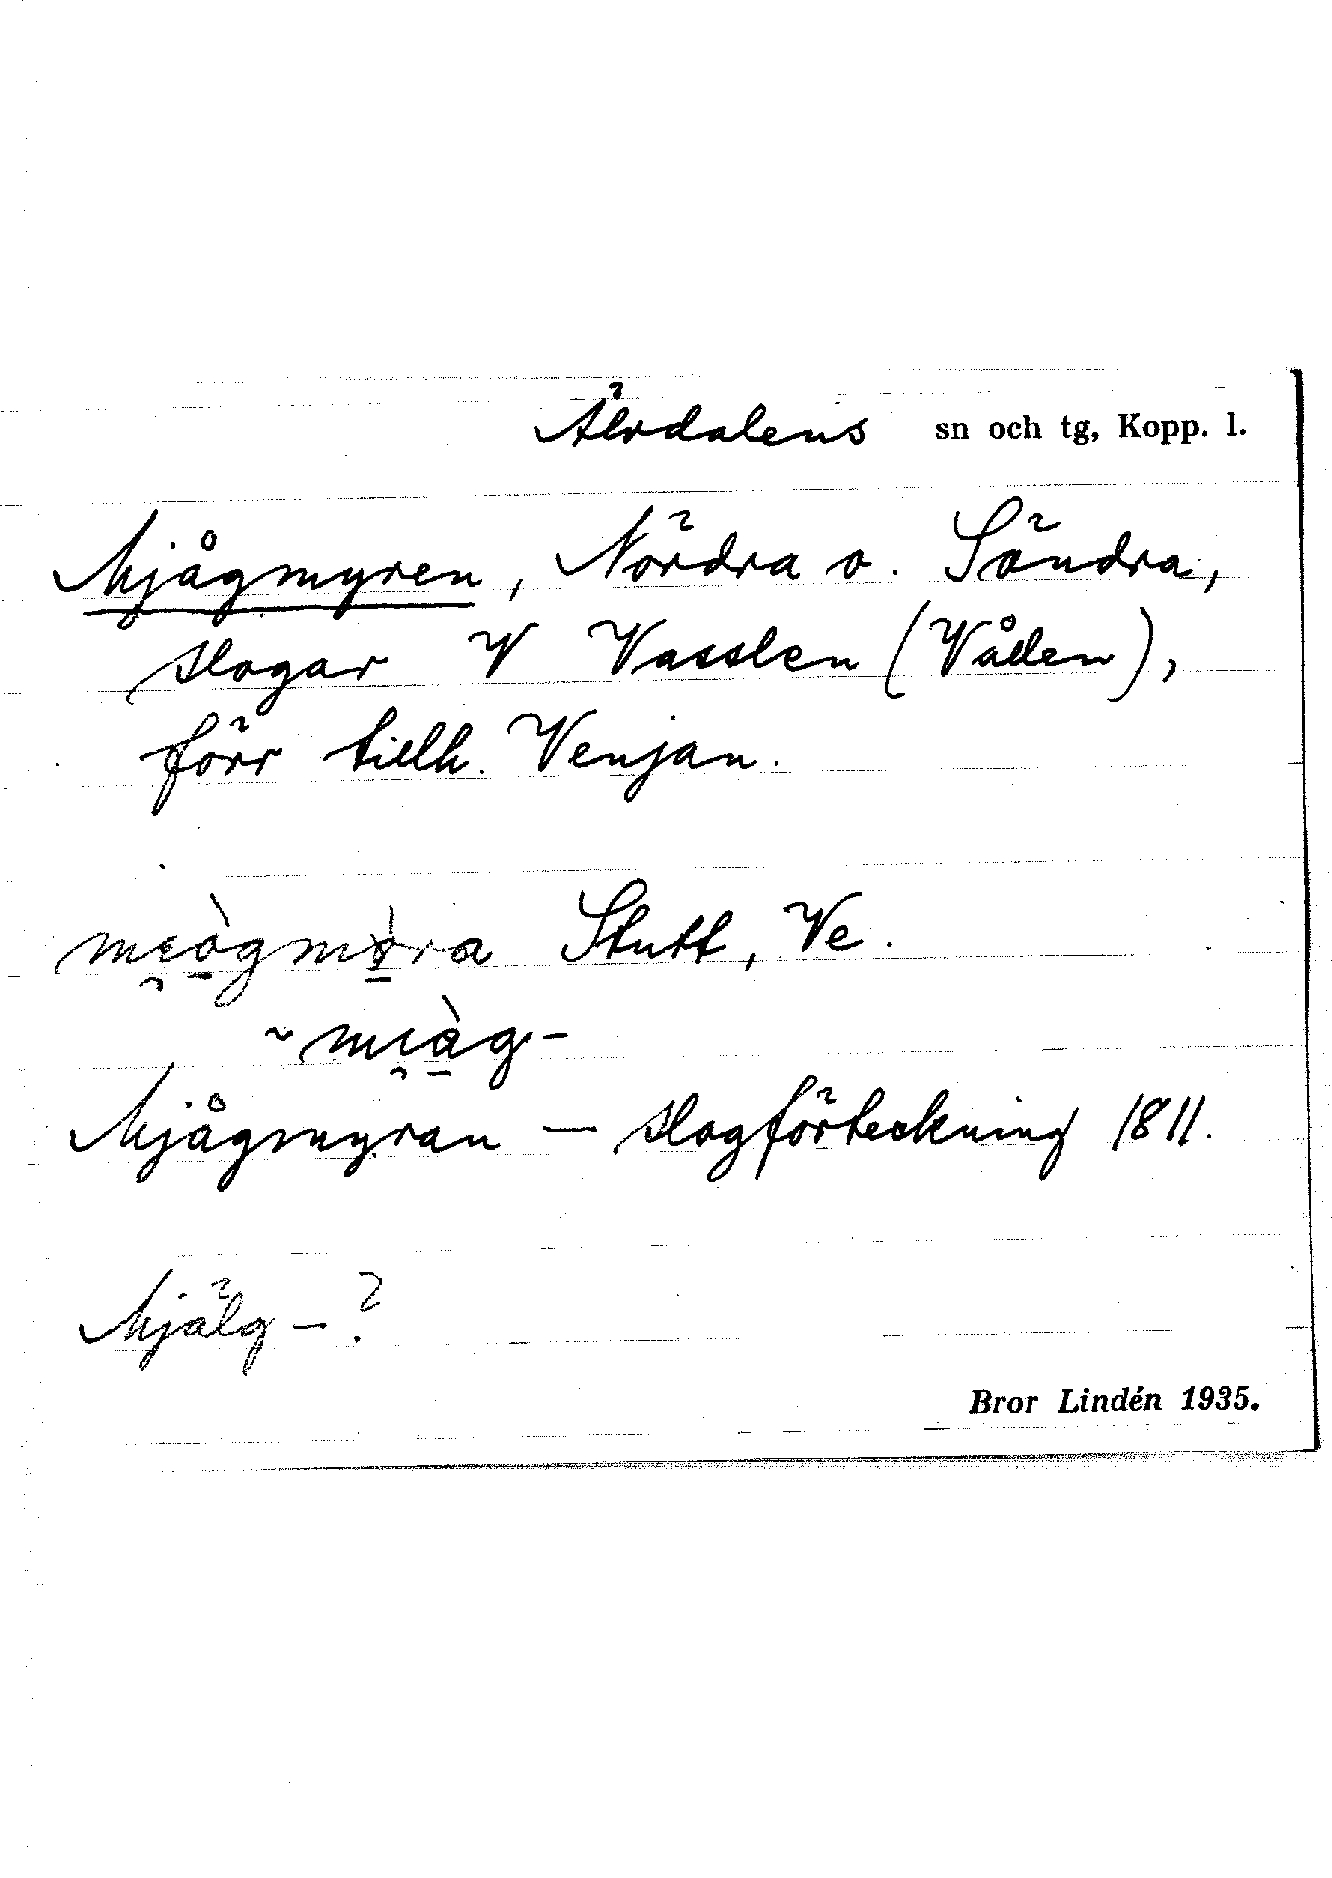 Älvdalens sn och tg, Kopp. l.
Mjågmyren, Nördra o. Söndra,
slogar V Vasslen (Vålen),
förr tillh. Venjan.
mi̯ò̠gmò̠ra Stutt, Ve.
~ mi̯à̠g-
Mjågmyran — slogförteckning 1811.
Mjälg - ?
Bror Lindén 1935.